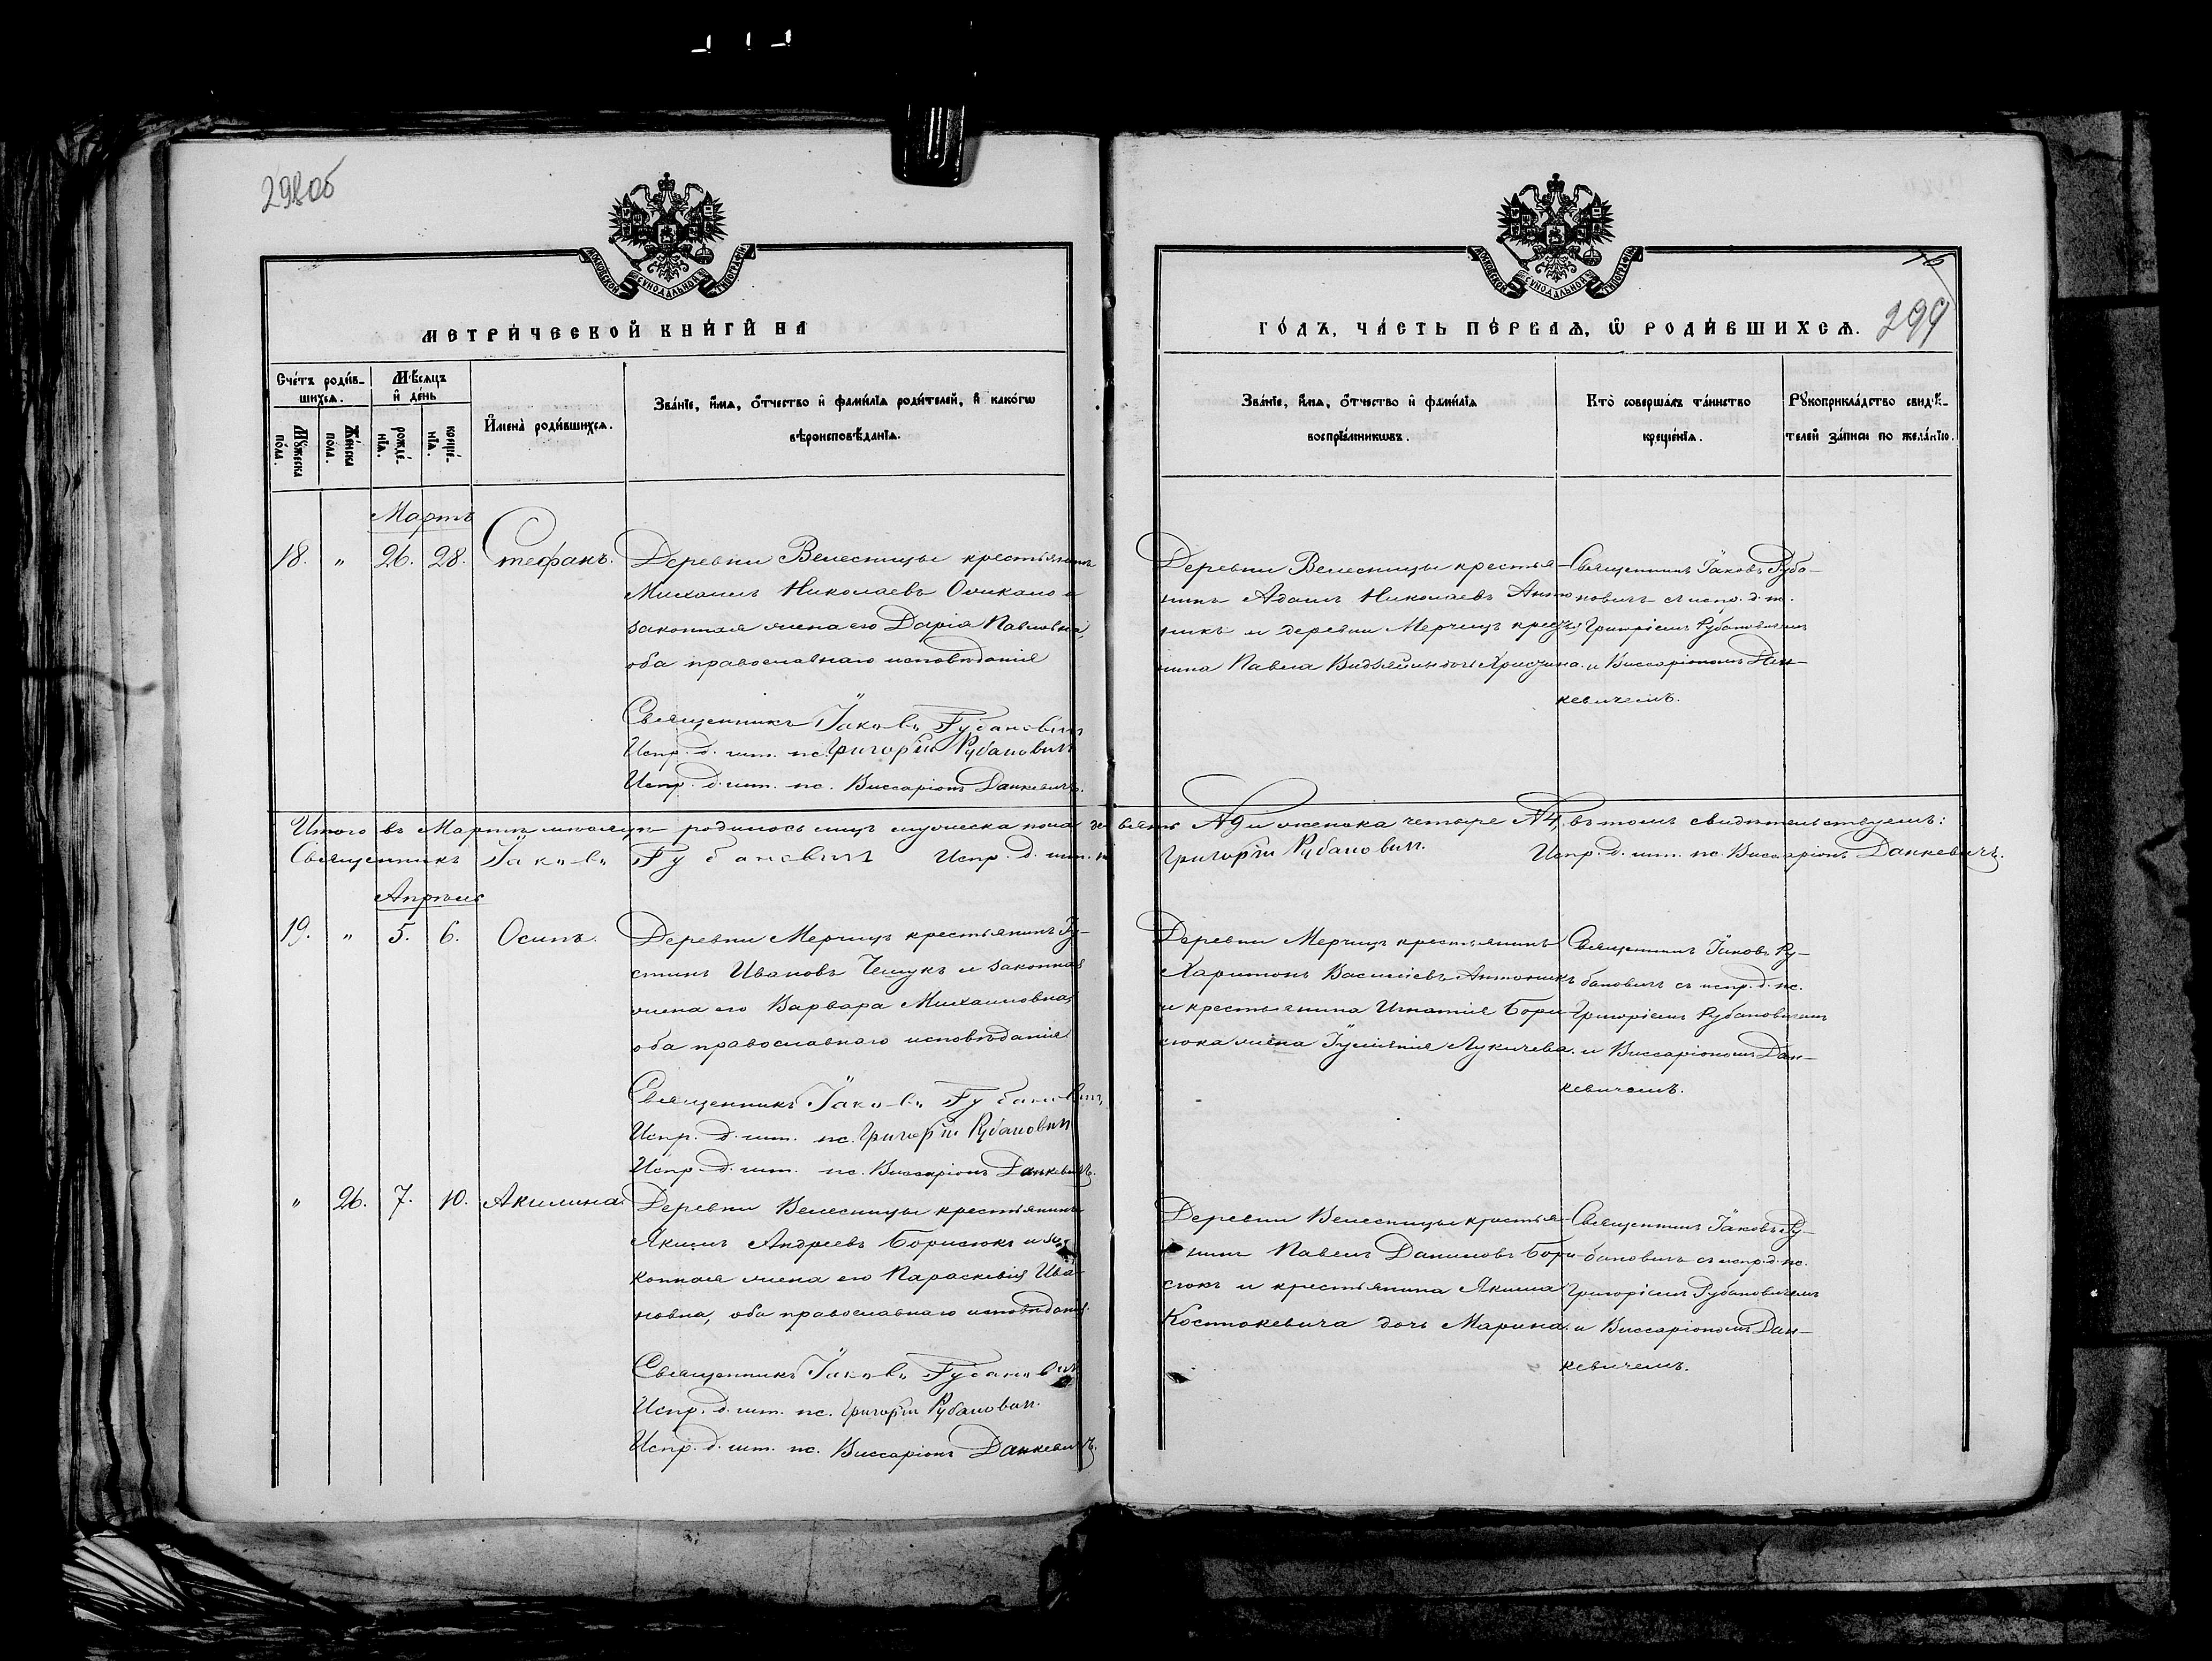 298об
МОСКОВСКОЙ СѴНОДАЛЬНОЙ ТИПОГРАФІИ
МЕТРИ́ЧЕСКОЙ КНИ́ГИ НА
Сче́тъ роди́вшихсѧ.
Мѣ́сяцъ и҆ де́нь
И҆мена̀ роди́вшихсѧ.
Зва́нїе, и҆́мѧ, ѻ҆́тчество и҆ фами́лїѧ роди́телей, и҆ како́гѡ
вѣроисповѣ́данїѧ.
Мꙋ́жеска по́ла.
Же́нска по́ла.
рожде́нїѧ.
креще́нїѧ.
Мартъ
18. " 26. 28. Стефанъ. Деревни Велесницы крестьянинъ
Михаилъ Николаевъ и
законная жена его Дарія Павловна,
оба православнаго исповѣданія
Священникъ Іаковъ Рубановичъ
Испр. д. шт. пс. Григорій Рубановичъ
Испр. д. шт. пс. Виссаріонъ Данкевичъ.
Итого въ Мартѣ мѣсяцѣ родилось лицъ мужеска пола де
Священникъ Іаковъ Рубановичъ Испр. д. шт. п
Апрѣль
19. " 5. 6. Осипъ. Деревни Мерчицъ крестьянинъ Іу-
стинъ Ивановъ Чешукъ и законная
жена его Варвара Михаиловна,
оба православнаго исповѣданія
Священникъ Іаковъ Рубановичъ
Испр. д. шт. пс. Григорій Рубановичъ
Испр. д. шт. пс. Виссаріонъ Данкевичъ.
" 26. 7. 10. Акилина. Деревни Велесницы крестьянинъ
Якимъ Андреевъ Борисюкъ и за-
конная жена его Параскевія Ива-
новна, оба православнаго исповѣданія.
Священникъ Іаковъ Рубановичъ
Испр. д. шт. пс. Григорій Рубановичъ.
Испр. д. шт. пс. Виссаріонъ Данкевичъ.
МОСКОВСКОЙ СѴНОДАЛЬНОЙ ТИПОГРАФІИ
299
ГО́ДЪ, ЧА́СТЬ ПЕ́РВАѦ, Ѡ҆ РОДИ́ВШИХСѦ.
Зва́нїе, и҆́мѧ, ѻ҆́тчество и҆ фами́лїѧ
воспрїе́мникѡвъ.
Кто̀ соверша́лъ та́инство
креще́нїѧ.
Рꙋкоприкла́дство свидѣ́-
телей за́писи по жела́нїю.
Деревни Велесницы крестья-
нинъ Адамъ Николаевъ Анто
никъ и деревни Мерчицъ крестья
нина Павла дочь Христина.
Священникъ Іаковъ Руба-
новичъ съ испр. д. шт.
Григоріемъ Рубановичемъ
и Виссаріономъ Дан-
кевичемъ.
вять №9 и женска четыре №4. въ томъ свидѣтельствуемъ:
Григорій Рубановичъ. Испр. д. шт. пс. Виссаріонъ Данкевичъ.
Деревни Мерчицъ крестьянинъ
Харитонъ Василіевъ Антоникъ
и крестьянина Игнатія Бори-
сюка жена Іуліанія Лукичева.
Священникъ Іаковъ Ру-
бановичъ съ испр. д. пс.
Григоріемъ Рубановичемъ
и Виссаріономъ Дан-
кевичемъ.
Деревни Велесницы крестья-
нинъ Павелъ Даниловъ Бори-
сюкъ и крестьянина Якима
Костюкевича дочь Марина.
Священникъ Іаковъ Ру-
бановичъ съ испр. д. пс.
Григоріемъ Рубановичемъ
и Виссаріономъ Дан-
кевичемъ.